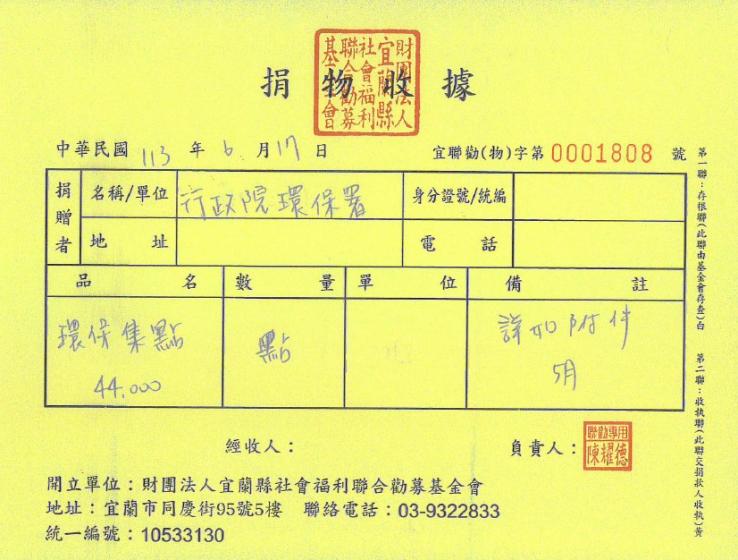 捐物收據
財團法人
宜蘭縣
社會福利
聯合勸募
基金會
中華民國 113 年 6 月 17 日
宜聯勸(物)字第 0001808 號
捐贈者 名稱/單位 行政院環保署 身分證號/統編
地址 電話
品名 數量 單位 備註
環保集點 點 詳如附件
44,000 5月
經收人：
負責人：
聯勸專用
陳耀德
開立單位：財團法人宜蘭縣社會福利聯合勸募基金會
地址：宜蘭市同慶街95號5樓 聯絡電話：03-9322833
統一編號：10533130
第一聯：存根聯(此聯由基金會存查)白
第二聯：收執聯(此聯交捐款人收執)黃